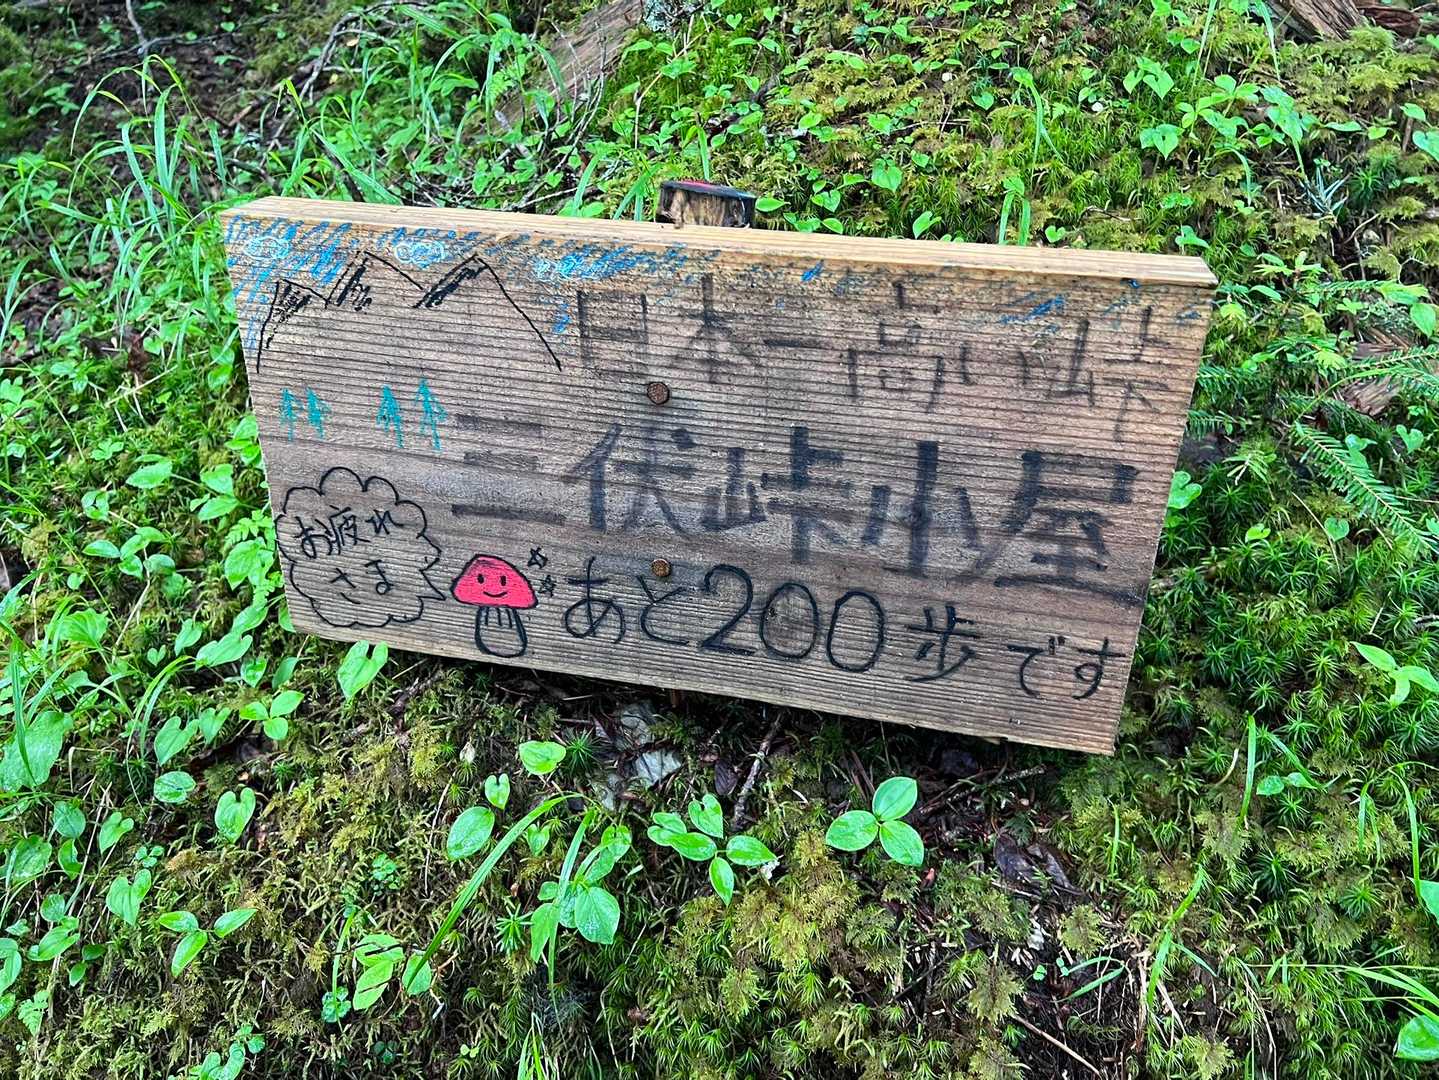 日本一高い峠
三伏峠小屋
お疲れ
さま
あと200歩です